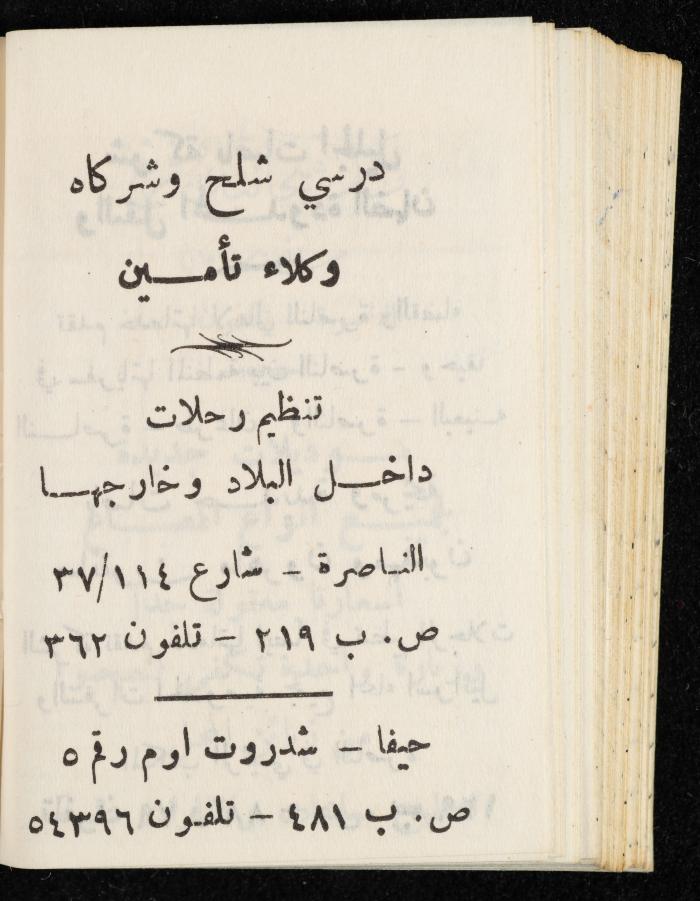 درسي شلح وشركاه
وكلاء تأمـــين
تنظيم رحلات
داخــل البلاد وخارجهــا
الناصرة – شارع ٣٧/١١٤
ص. ب ٢١٩ – تلفون ٣٦٢
حيفا – شدروت اوم رقم ٥
ص. ب ٤٨١ – تلفون ٥٤٣٩٦